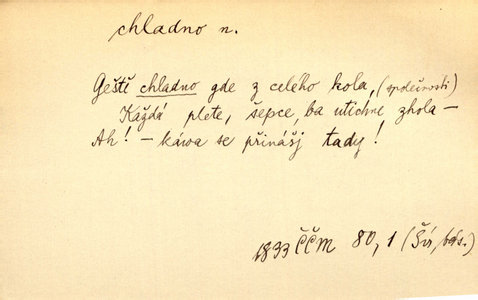 chladno n.
Gešti chladno gde z celého kola, (společnosti)
Každá plete, šepce, ba utichne zhola —
Ah! — káwa se přinášj tady!
1833 ČČM 80, 1 (Šír, bás.)